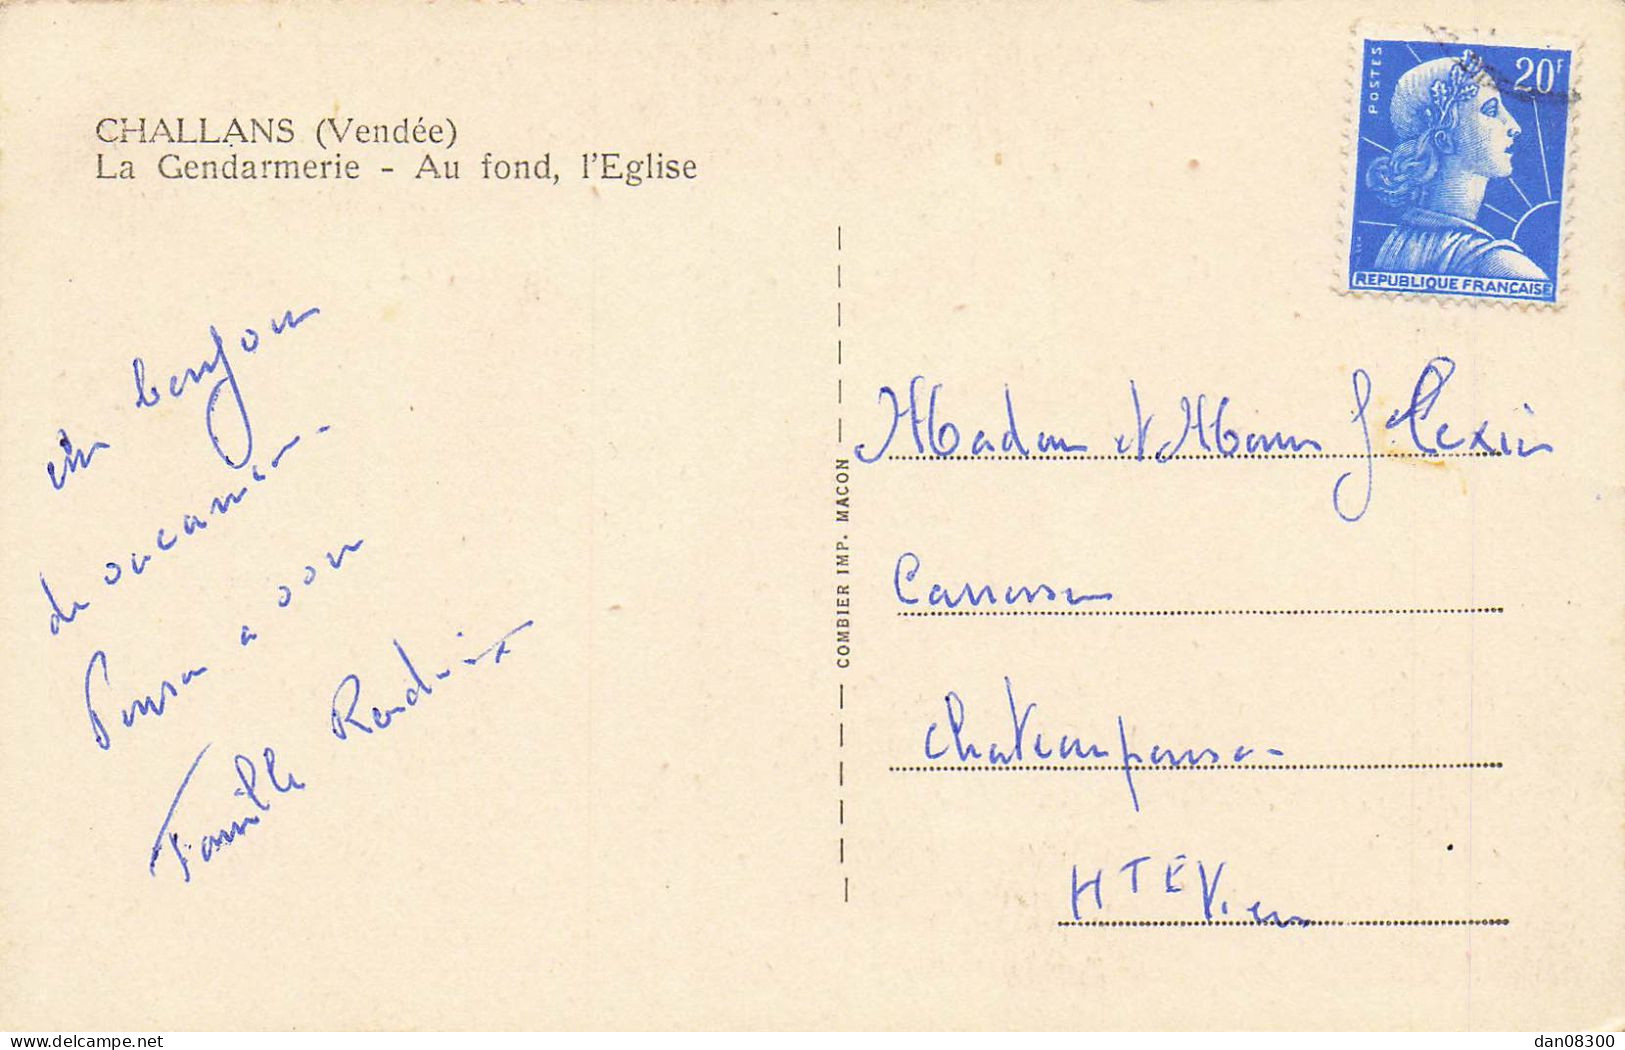 CHALLANS (Vendée)
La Gendarmerie - Au fond, l'Eglise
POSTES
20F
REPUBLIQUE FRANÇAISE
un bonjour
de vacances.
Pensons a vous
Famille
COMBIER IMP. MACON
Madame et Monsieur
Chateauponsac
HTE Vienne
delcampe.net
dan08300